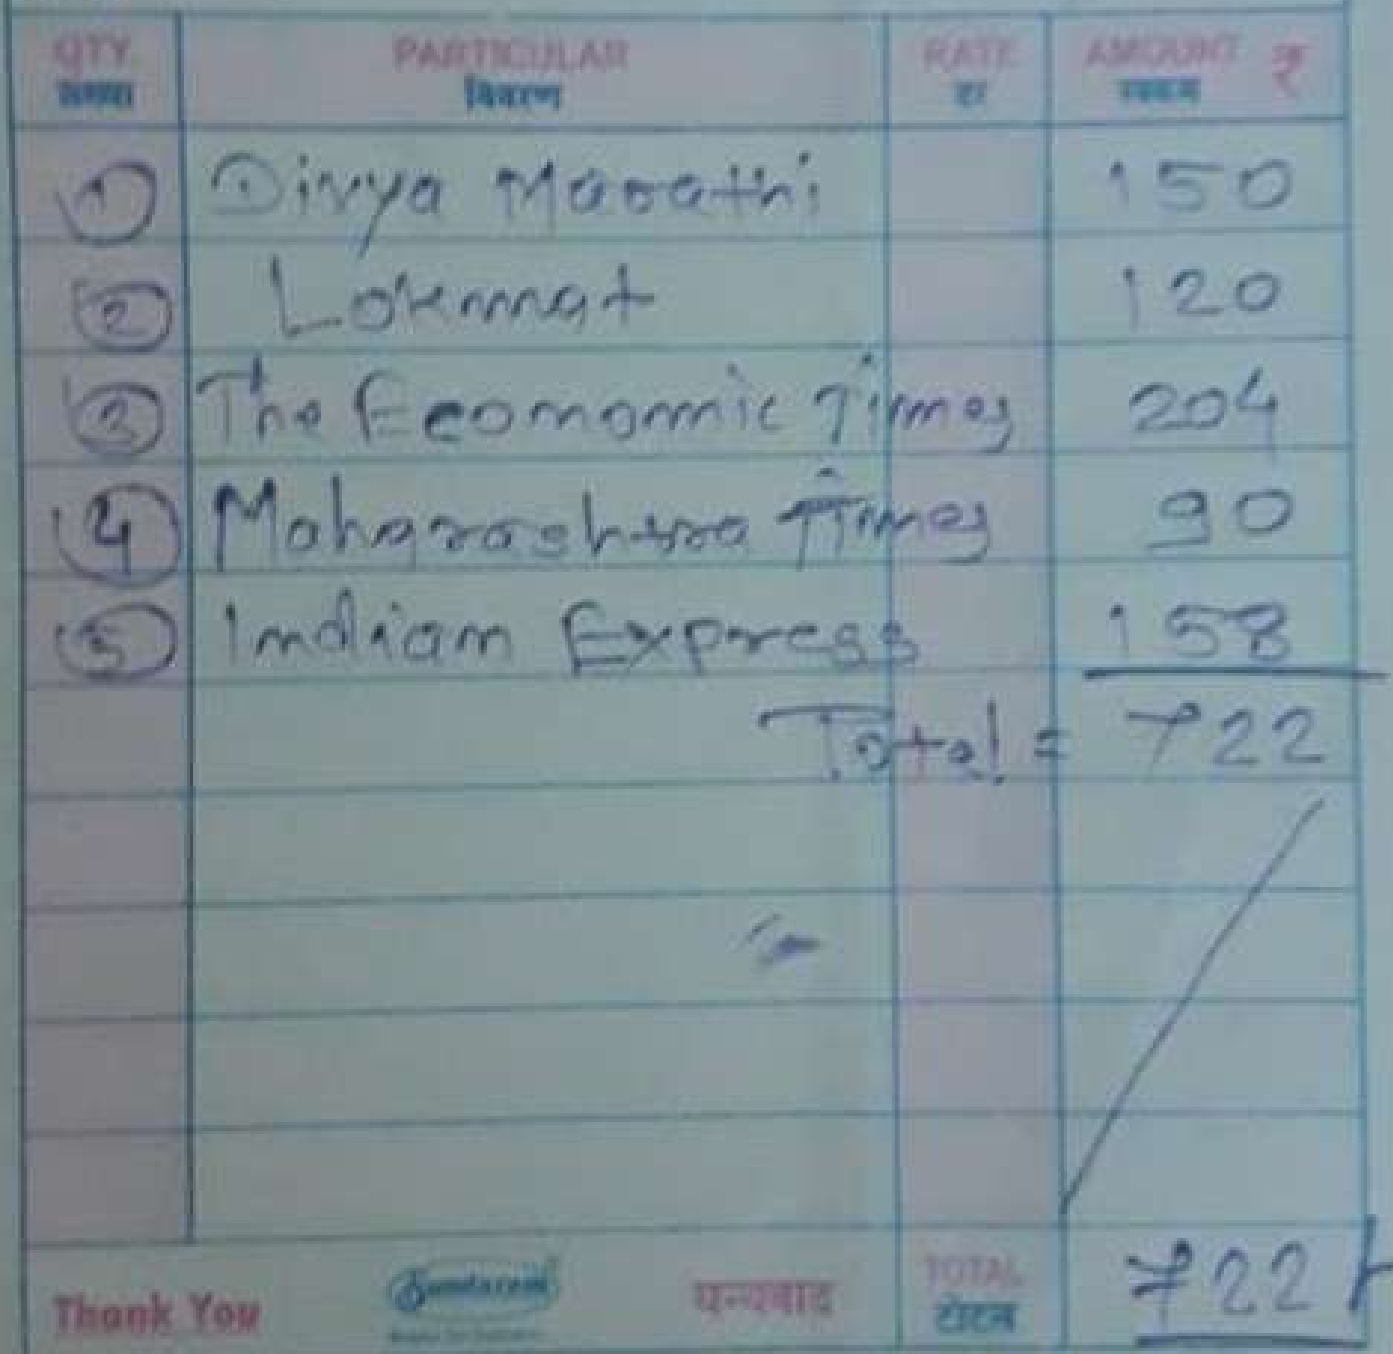 QTY. PARTICULAR RATE AMOUNT ₹
संख्या विवरण दर रक्कम
1 Divya Marathi 150
2 Lokmat 120
3 The Economic Times 204
4 Maharashtra Times 90
5 Indian Express 158
Total = 722
Thank You Sundaram धन्यवाद TOTAL 722
टोटल